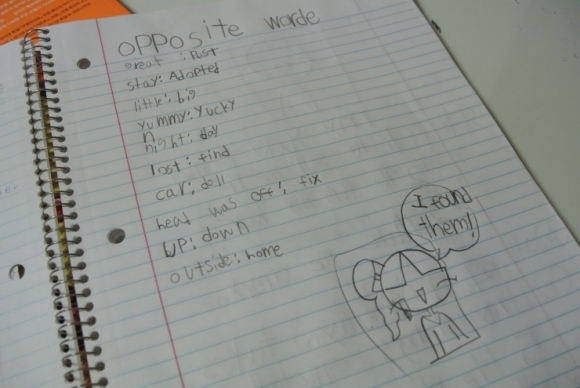 opposite worde
great : Past
stay: Adopted
little: big
yummy: yucky
night: day
lost: find
car: doll
head was off: fix
up: down
outside: home
I found
them!